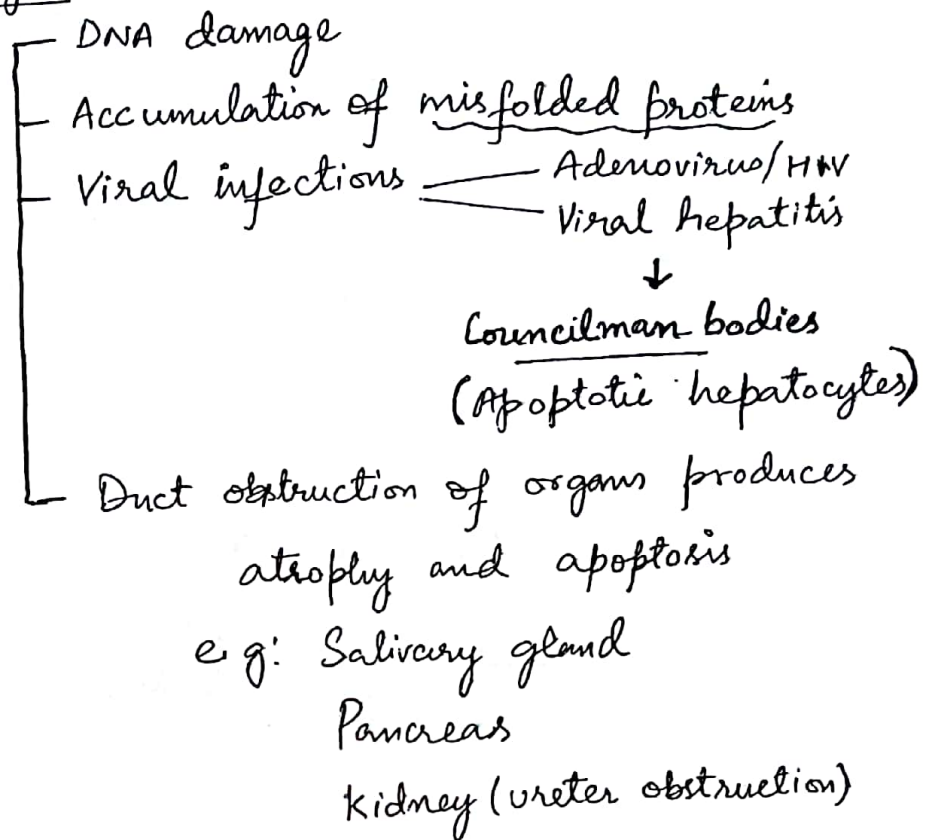 DNA damage
Accumulation of misfolded proteins
Viral infections
Adenovirus/HIV
Viral hepatitis
↓
Councilman bodies
(Apoptotic hepatocytes)
Duct obstruction of organs produces
atrophy and apoptosis
eg: Salivary gland
Pancreas
Kidney (ureter obstruction)